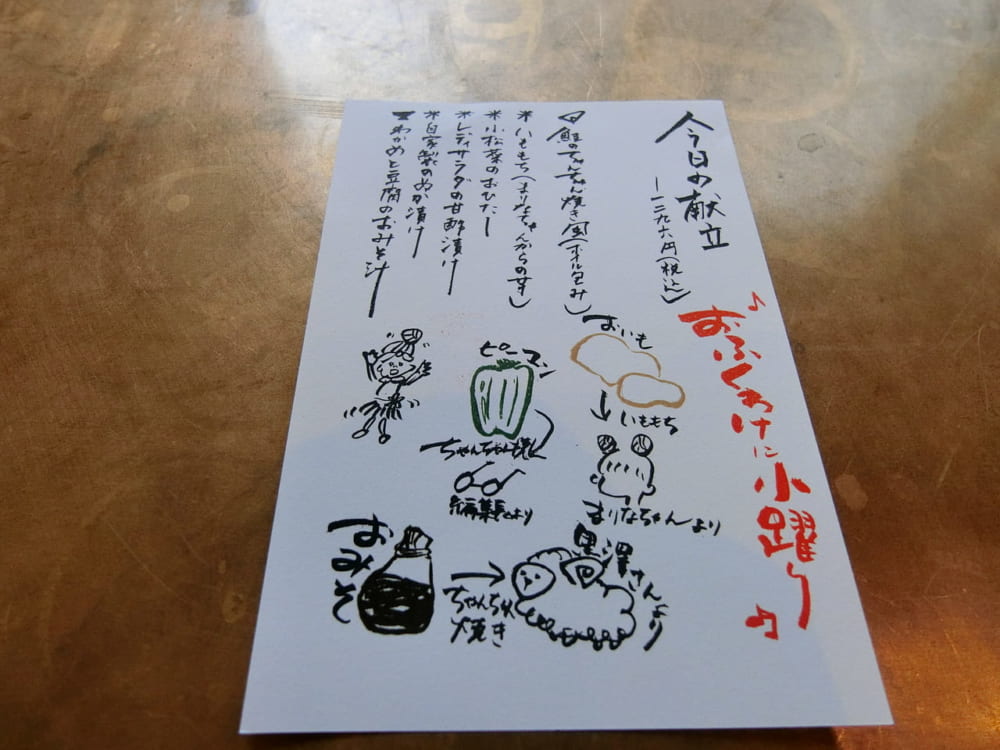 今日の献立
一二九六円(税込)
鮭のちゃんちゃん焼き風(ホイル包み)
＊いももち(まりなちゃんからの芋)
＊小松菜のおひたし
＊レディサラダの甘酢漬け
＊自家製のぬか漬け
わかめと豆腐のおみそ汁
♪おふくわけに小躍り♫
おいも
↓いももち
まりなちゃんより
ピーマン
ちゃんちゃん焼
編集長より
おみそ
→
ちゃんちゃん
焼き
黒澤さんより